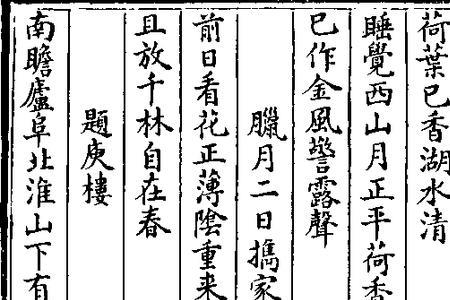 荷葉已香湖水清
睡覺西山月正平荷香
已作金風警露聲
臘月二日擕家
前日看花正薄隂重来
且放千林自在春
題庾樓
南瞻廬阜北淮山下有